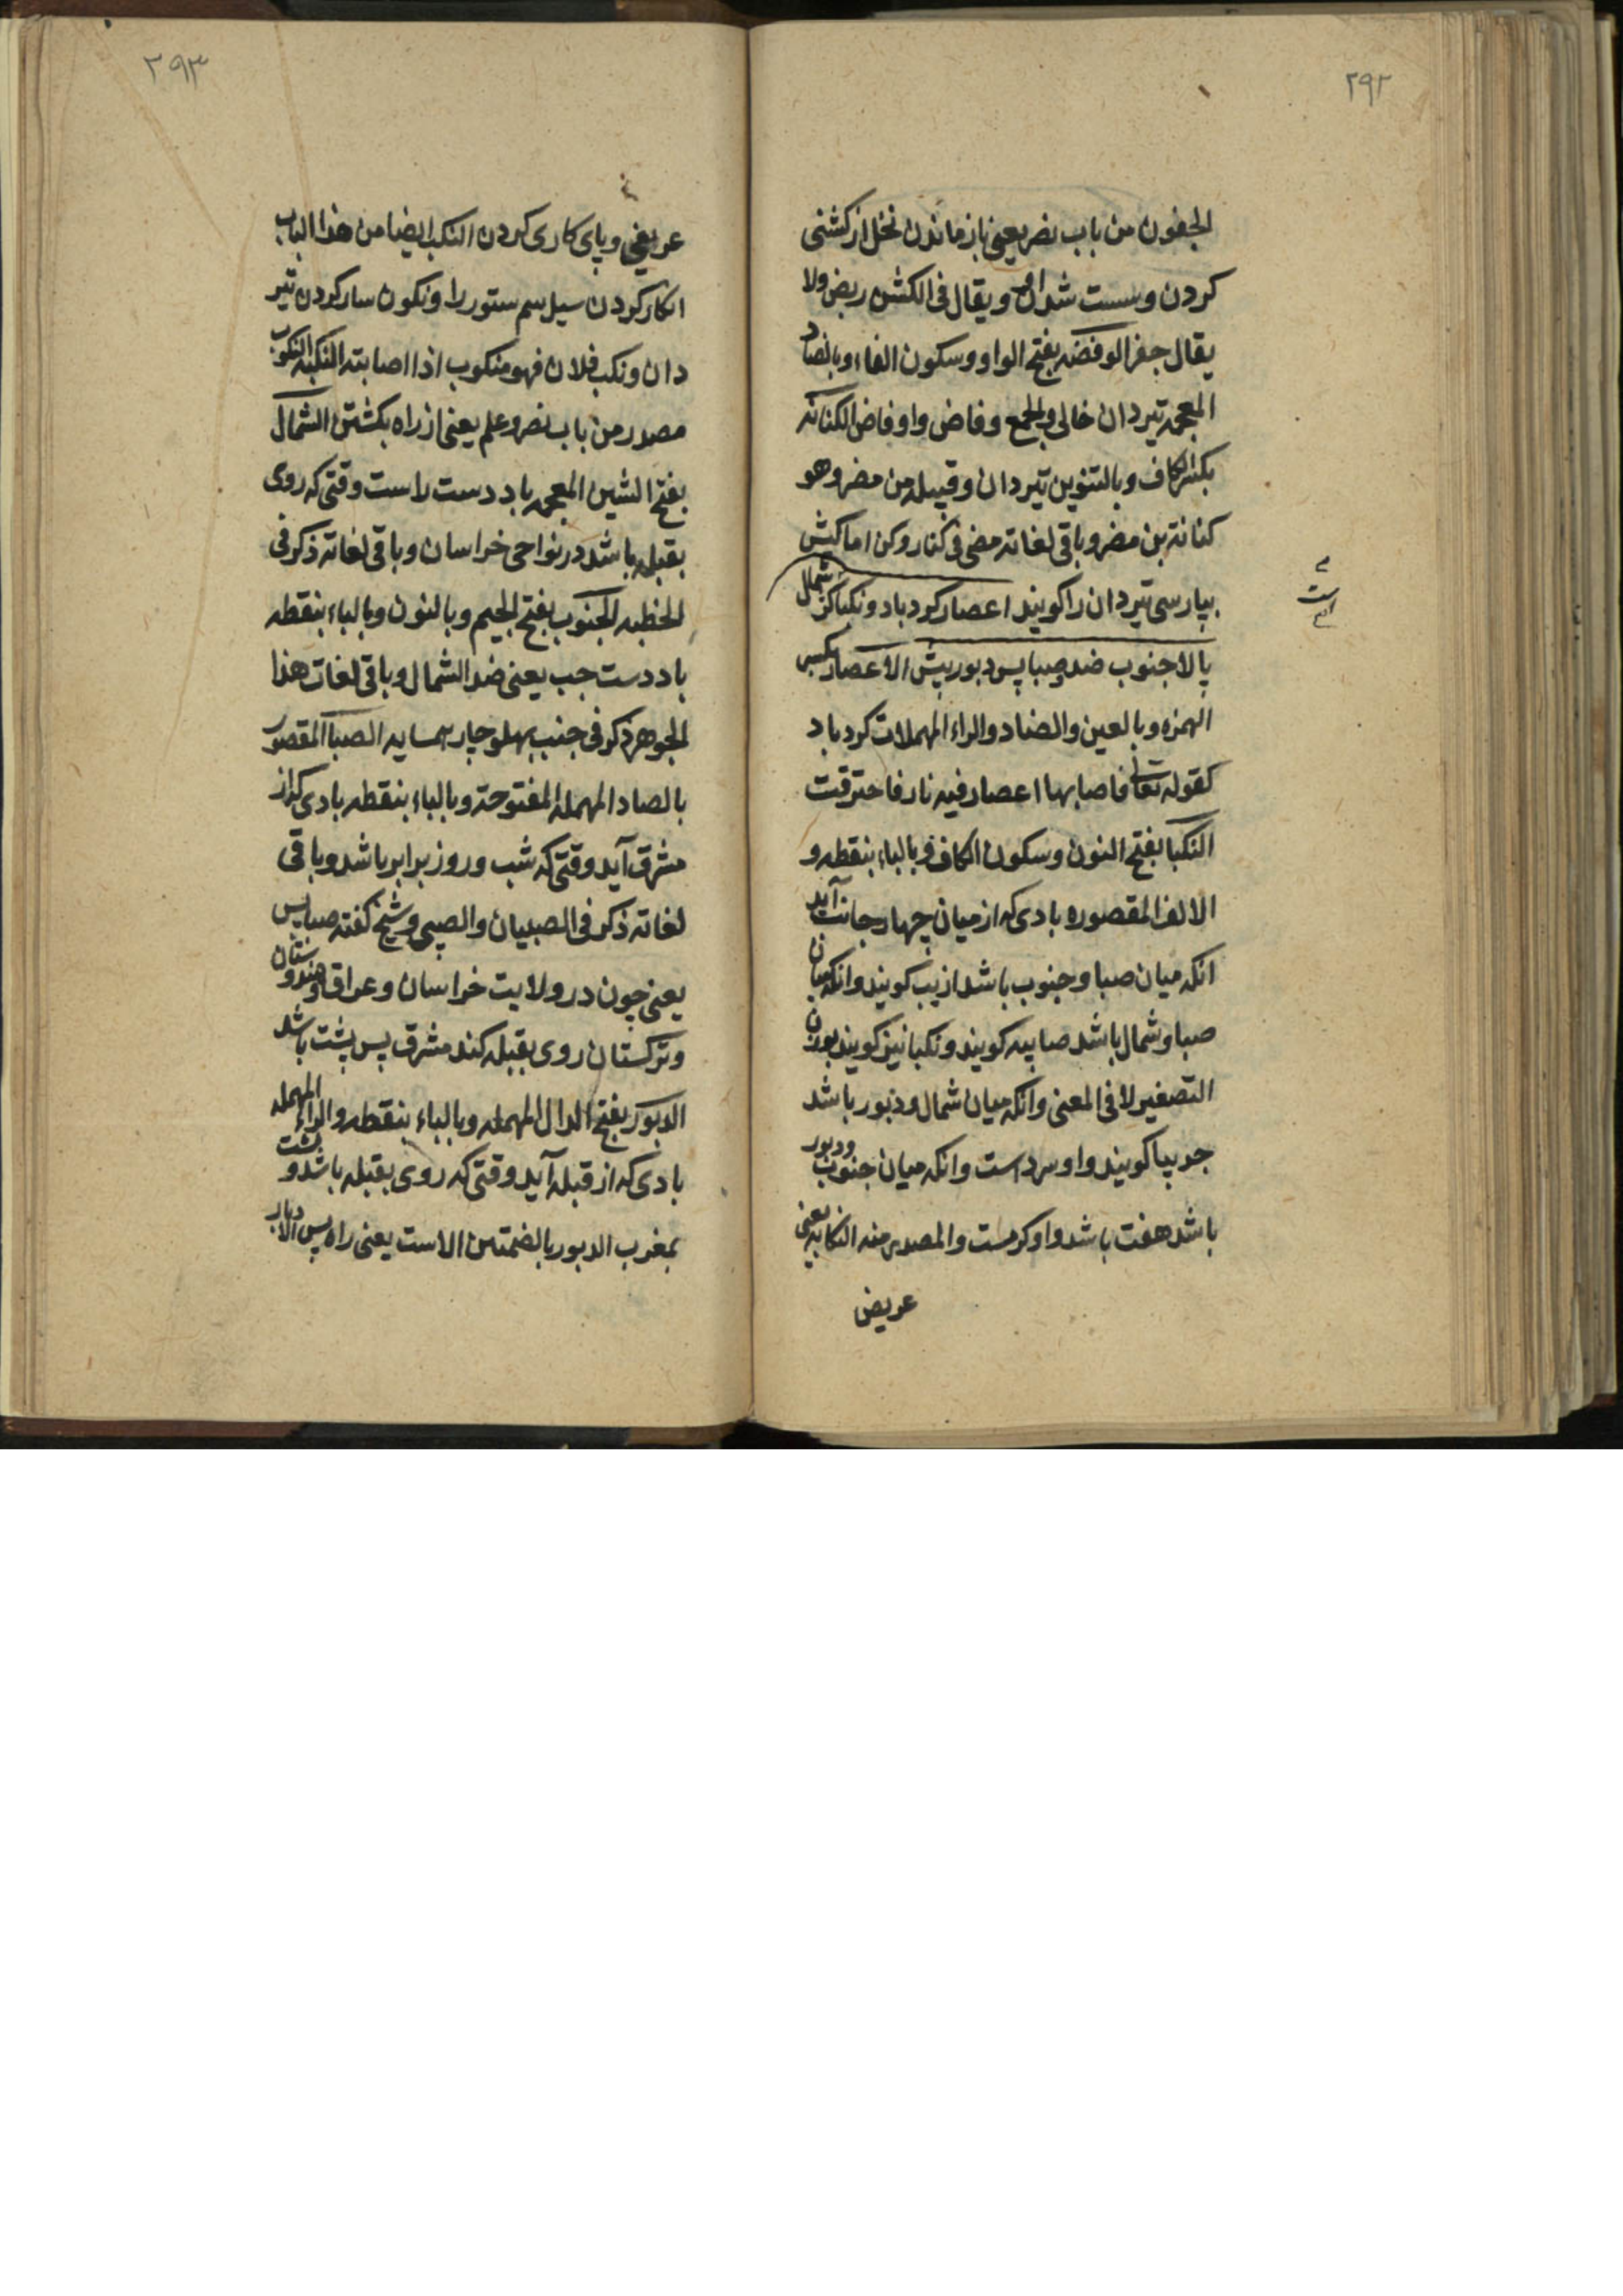 ۲۹۲
الجفون من باب نصر یعنی باز ماندن نخل از کشنی
کردن و سست شدن او و یقال فی الکشن ربض ولا
یقال جفر الوفضه بفتح الواو وسکون الفاء وبالضاد
المعجمه تیردان خالی والجمع وفاض واوفاض الکنانه
بکسر الکاف وبالتنوین تیردان وقبیله من مضر وهو
کنانة بن مضر وباقی لغاته مضی فی کنار و کن اما کیش
بپارسی تیردان را کویند اعصار کردباد و نکبا کژ شمال
بالا جنوب ضد وصبا پس دبور پیش الاعصار بکسر
الهمزه وبالعین والصاد والراء المهملات کردباد
کقوله تعالی فاصابها اعصار فیه نار فاحترقت
النکبا بفتح النون وسکون الکاف وبالباء بنقطه و
الالف المقصوره بادی که از میان چهار جانب آید
انکه میان صبا و جنوب باشد ازیب کویند وانکه میان
صبا و شمال باشد صابیه کویند و نکبا نیز کویند بوزن
التصغیر لا فی المعنی وانکه میان شمال و دبور باشد
جربیا کویند واو سرد است وانکه میان جنوب ودبور
باشد هفت باشد واو کرمست والمصدر منه النکابه یعنی
عریض
۲۹۳
عریفی و پای کاری کردن النکب ایضا من هذا الباب
انکار کردن سیل سم ستور را و نکون سار کردن تیر
دان ونکب فلان فهو منکوب اذا اصابته النکبه النکوب
مصدر من باب نصر وعلم یعنی از راه بکشتن الشمال
بفتح الشین المعجمه باد دست راست وقتی که روی
بقبله باشد در نواحی خراسان وباقی لغاته ذکر فی
الخطبه الجنوب بفتح الجیم وبالنون وبالباء بنقطه
باد دست چپ یعنی ضد الشمال وباقی لغات هذا
الجوهر ذکر فی جنب پهلو جار همسایه الصبا المقصور
بالصاد المهمله المفتوحة وبالباء بنقطه بادی که از
مشرق آید وقتی که شب و روز برابر باشد وباقی
لغاته ذکر فی الصبیان والصبی وشیخ کفته صبا پس
یعنی چون در ولایت خراسان و عراق و هندوستان
و ترکستان روی بقبله کند مشرق پس پشت باشد
الدبور بفتح الدال المهمله وبالباء بنقطه والراء المهمله
بادی که از قبله آید وقتی که روی بقبله باشد و پشت
بمغرب الدبور بالضمتین الاست یعنی راه پس الادبار